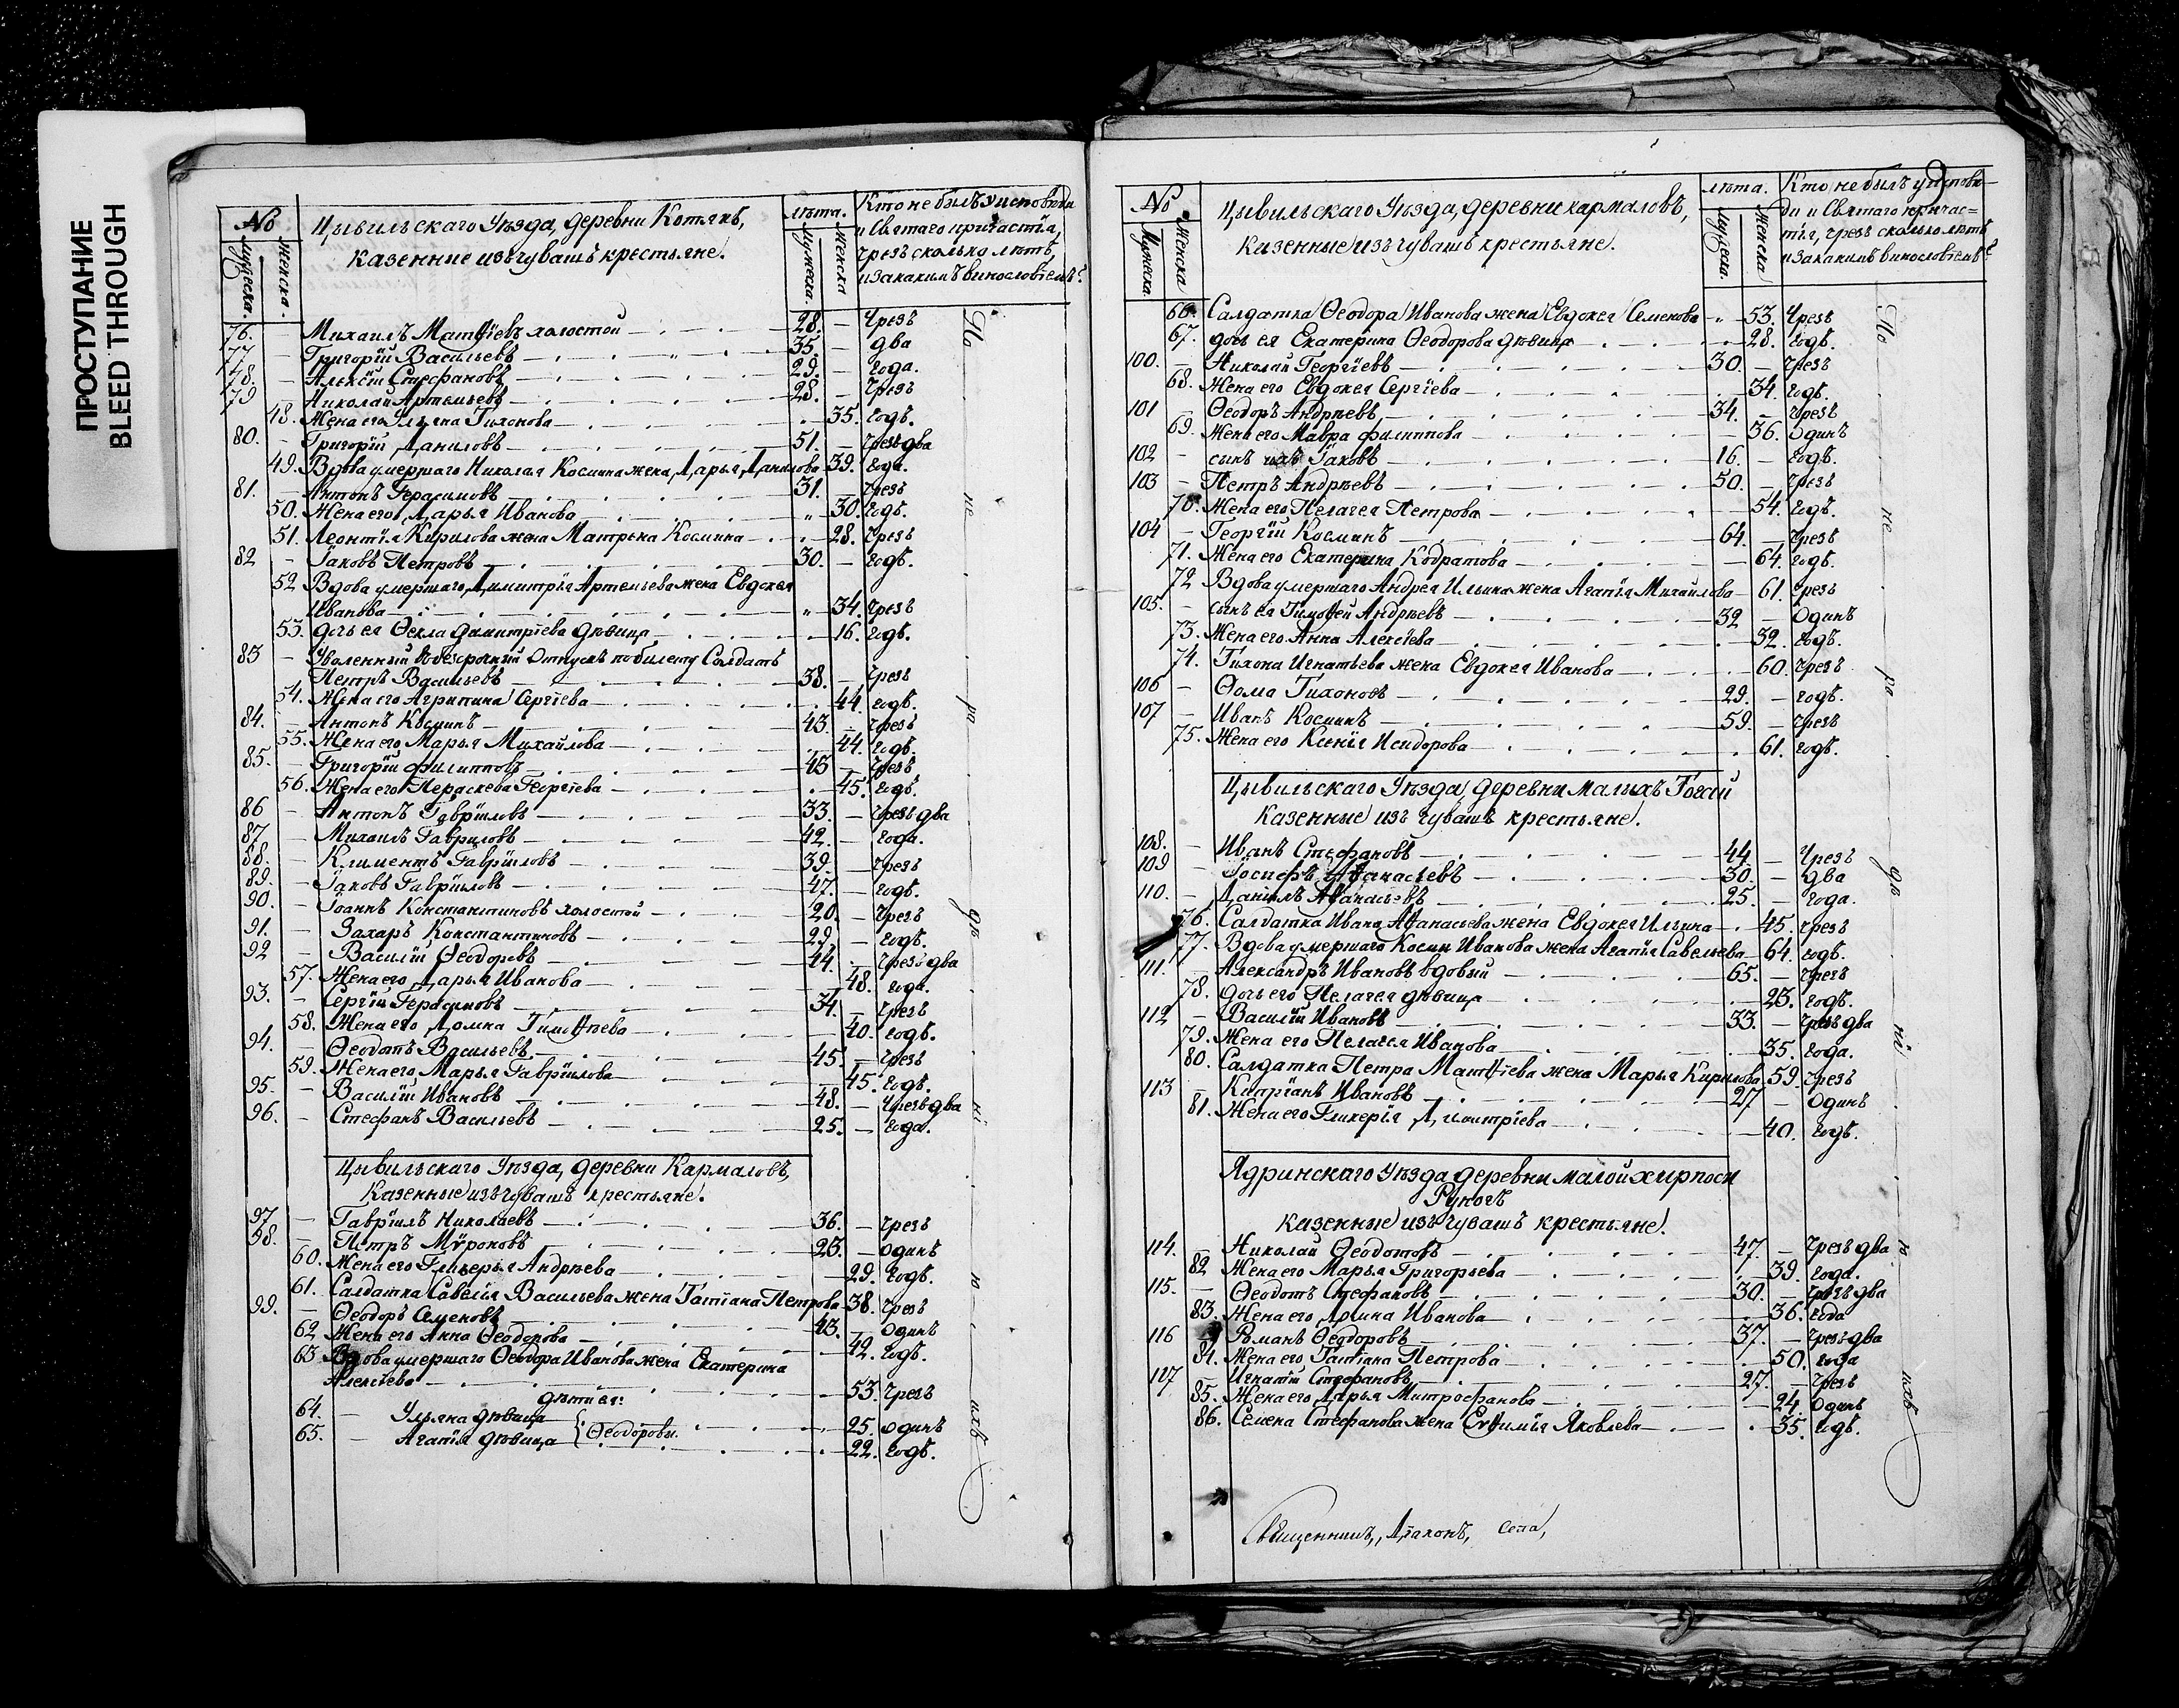 ПРОСТУПАНИЕ
BLEED THROUGH
№ Мужеска. Женска.
Цывильскаго Уѣзда, деревни Котякъ,
казенные изъ чувашъ крестьяне.
лѣта. Мужеска. Женска
Кто не былъ у исповѣди
и Святаго причастїя,
чрезъ сколько лѣтъ,
и за какимъ винословїемъ?
76. Михаилъ Матѳїевъ холостой 28. Чрезъ
77 Григорїй Васильевъ 35. два
78. Алексїй Стефановъ 29. года.
79 Николай Артемьевъ 28. Чрезъ
48. Жена его Ульяна Тихонова 35. годъ.
80. Григорїй Даниловъ 51. Чрезъ два
49. Вдова умершаго Николая Космина жена Дарья Данилова 39. года.
81. Антонъ Герасимовъ 31. Чрезъ
50. Жена его Дарья Иванова 30. годъ.
51. Леонтїя Кирилова жена Матрена Космина 28. Чрезъ
82 Їаковъ Петровъ 30. годъ.
52 Вдова умершаго Димитрїя Артемьева жена Евдокея
Иванова 34. Чрезъ
53. дочь ея Ѳекла Димитрїева дѣвица 16. годъ.
83 Уволенный въ безсрочный отпускъ по билету Солдатъ
Петръ Васильевъ 38. Чрезъ
54. Жена его Агрипина Сергїева 44. годъ.
84. Антонъ Косминъ 43. Чрезъ
55. Жена его Марья Михайлова 44. годъ.
85. Григорїй Филипповъ 43 Чрезъ
56. Жена его Пераскева Георгїева 45. годъ.
86 Антонъ Гаврїиловъ 33. Чрезъ два
87. Михаилъ Гавриловъ 42. года.
88. Климентъ Гаврїиловъ 39. Чрезъ
89. Їаковъ Гаврїиловъ 47. годъ.
90. Їоаннъ Константиновъ холостой 20. Чрезъ
91. Захаръ Константиновъ 29. годъ.
92 Василїй Ѳеодоровъ 44. Чрезъ два
57. Жена его Дарья Иванова 48. года.
93. Сергїй Герасимовъ 34. Чрезъ
58. Жена его Домна Тимоѳѣева 40. годъ.
94. Ѳеодотъ Васильевъ 45. Чрезъ
59. Жена его Марья Гаврїилова 45. годъ.
95. Василїй Ивановъ 48. Чрезъ два
96. Стефанъ Васильевъ 25. года.
Цывильскаго Уѣзда, деревни Кармаловъ,
Казенные изъ чувашъ крестьяне.
97 Гаврїилъ Николаевъ 36. Чрезъ
98. Петръ Мѵроновъ 23. одинъ
60. Жена его Гликерья Андрѣева 29. годъ.
61. Салдатка Савелїя Васильева жена Татїана Петрова 38. Чрезъ
99. Ѳеодоръ Семеновъ 43. одинъ
62 Жена его Анна Ѳеодорова 42. годъ.
63 Вдова умершаго Ѳеодора Иванова жена Екатерина
Алексїева 53. Чрезъ
дѣти ея:
64. Ульяна дѣвица 25. одинъ
65. Агапїя дѣвица Ѳеодоровы. 22. годъ.
По не ра дѣ нї ю ихъ
№ Мужеска. Женска
Цывильскаго Уѣзда, деревни Кармаловъ,
Казенные изъ чувашъ крестьяне.
лѣта. Мужеска. Женска
Кто не былъ у исповѣ-
ди и Святаго причас=
тїя, чрезъ сколько лѣтъ
и за какимъ винословїемъ?
66. Салдатка Ѳеодора Иванова жена Евдокея Семенова 53. Чрезъ
67. дочь ея Екатерина Ѳеодорова дѣвица 28. годъ.
100. Николай Георгїевъ 30. Чрезъ
68. Жена его Евдокея Сергїева 34. годъ.
101 Ѳеодоръ Андрѣевъ 34. Чрезъ
69. Жена его Мавра Филиппова 36. одинъ
102 сынъ ихъ Їаковъ 16. годъ.
103 Петръ Андрѣевъ 50. Чрезъ
70. Жена его Пелагея Петрова 54. годъ.
104 Георгїй Косминъ 64. Чрезъ
71. Жена его Екатерина Кодратова 64. годъ.
72 Вдова умершаго Андрея Ильина жена Агапїя Михайлова 61. Чрезъ
105. сынъ ея Тимоѳей Андрѣевъ 32 Одинъ
73. Жена его Анна Алексїева 32. годъ.
74. Тихона Игнатьева жена Евдокея Иванова 60. Чрезъ
106 Ѳома Тихоновъ 29. годъ.
107 Иванъ Косминъ 59. Чрезъ
75. Жена его Ксенїя Исидорова 61. годъ.
Цывильскаго Уѣзда, деревни Малыхъ
Казенные изъ чувашъ крестьяне.
108. Иванъ Стефановъ 44. Чрезъ
109 Їосифъ Аѳанасьевъ 30. два
110. Данїилъ Аѳанасьевъ 25. года.
76. Салдатка Ивана Аѳанасьева жена Евдокея Ильина 45. Чрезъ
77. Вдова умершаго Космы Иванова жена Агапїя Савельева 64. годъ.
111. Александръ Ивановъ вдовый 65. Чрезъ
78. дочь его Пелагея дѣвица 23. годъ.
112 Василїй Ивановъ 33. Чрезъ два
79. Жена его Пелагея Иванова 35. года.
80. Салдатка Петра Матѳїева жена Марья Кирилова 59. Чрезъ
113 Кипрїанъ Ивановъ 27 Одинъ
81. Жена его Гликерїя Димитрїева 40. годъ.
Ядринскаго Уѣзда деревни малой
казенные изъ чувашъ крестьяне.
114. Николай Ѳеодотовъ 47. Чрезъ два
82 Жена его Марья Григорьева 39. года.
115. Ѳеодотъ Стефановъ 30. Чрезъ два
83. Жена его Арина Иванова 36. года
116 Романъ Ѳеодоровъ 37. Чрезъ два
84. Жена его Татїана Петрова 50. года
117 Игнатїй Стефановъ 27. Чрезъ
85. Жена его Дарья Митрофанова 24. Одинъ
86. Семена Стефанова жена Еѵѳимїя Яковлева 35. годъ.
По не ра дѣ нї ю ихъ
Священникъ, Дїаконъ, Села,